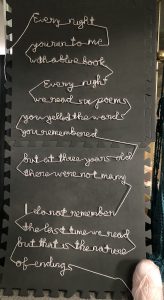 Every night
you ran to me
with a blue book
Every night
we read six poems
you yelled the word
you remembered
but at three years old
there were not many
I do not remember
the last time we read
but that is the nature
of endings